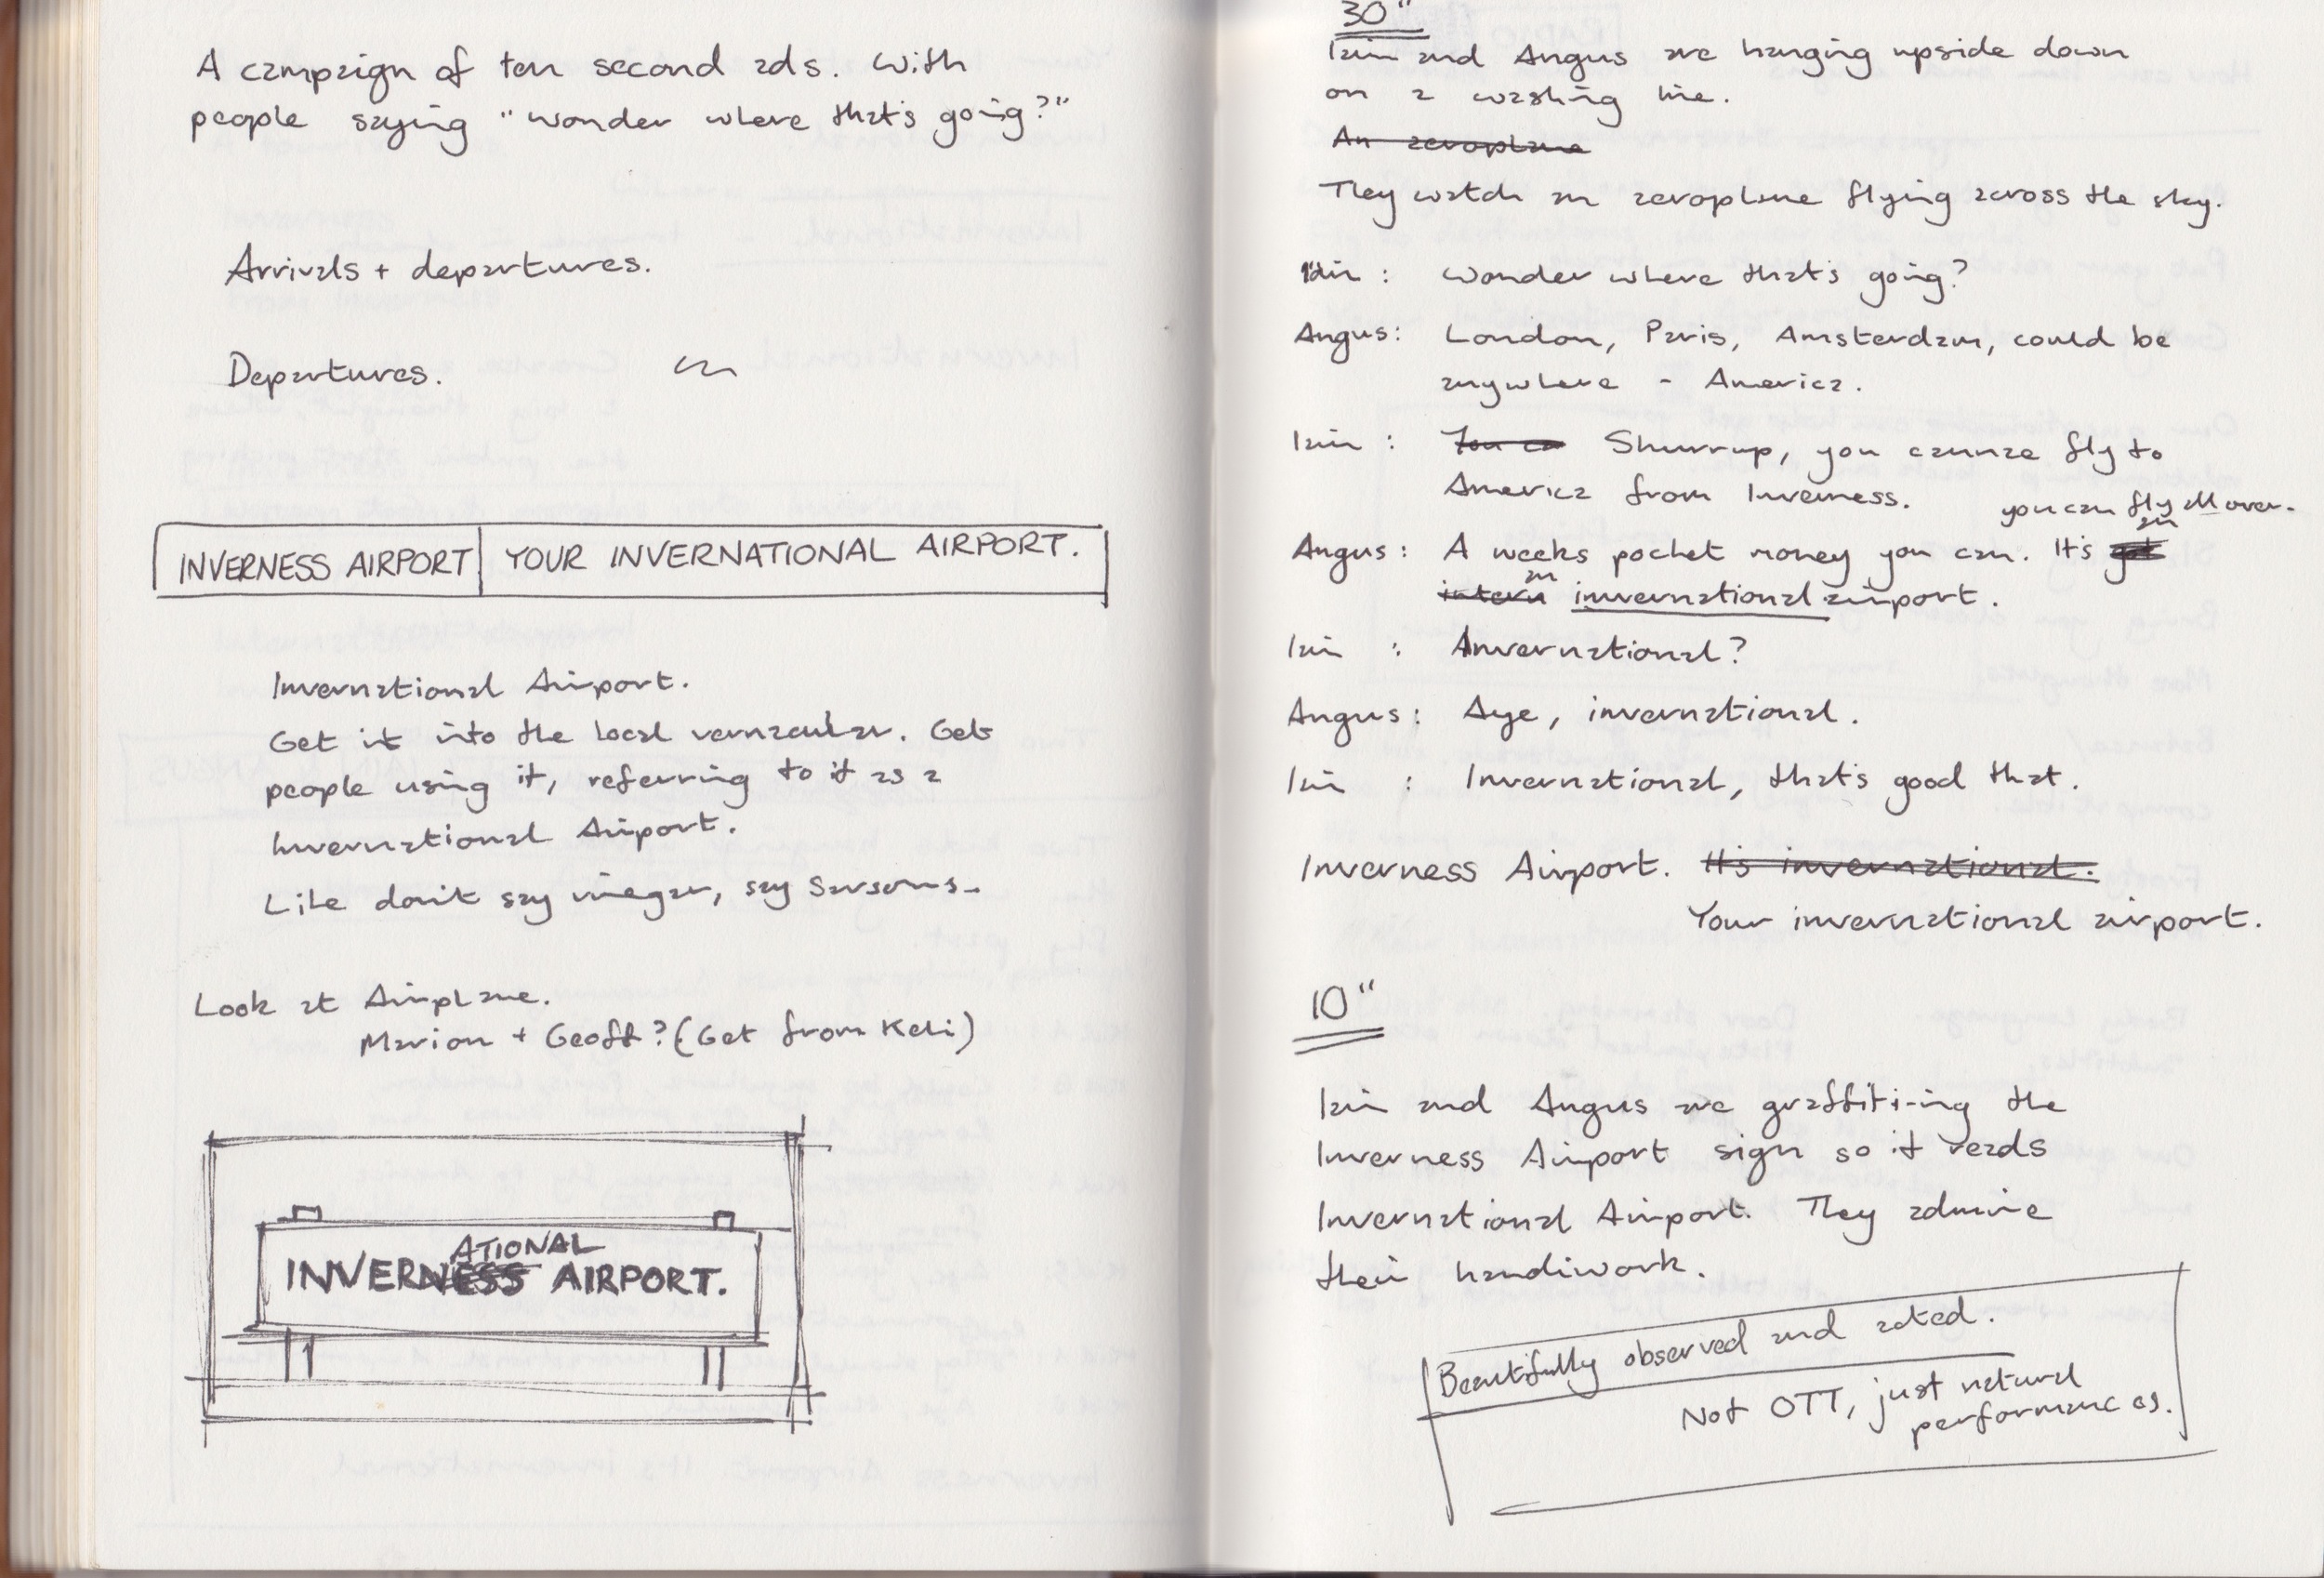 A campaign of ten second ads. With
people saying "wonder where that's going?"
Arrivals + departures.
Departures.
INVERNESS AIRPORT | YOUR INVERNATIONAL AIRPORT.
Invernational Airport.
Get it into the local vernacular. Get
people using it, referring to it as a
Invernational Airport.
Like don't say vinegar, say Sarsons.
Look at Airplane.
Marion + Geoff? (Get from Keli)
ATIONAL
INVERNESS AIRPORT.
30"
Iain and Angus are hanging upside down
on a washing line.
An aeroplane
They watch an aeroplane flying across the sky.
Iain : Wonder where that's going?
Angus: London, Paris, Amsterdam, could be
anywhere - America.
Iain : You ca Shurrup, you cannae fly to
America from Inverness.
you can fly all over.
Angus: A weeks pocket money you can. It's got an
intern an invernational airport.
Iain : Anvernational?
Angus: Aye, invernational.
Iain : Invernational, that's good that.
Inverness Airport. It's invernational.
Your invernational airport.
10"
Iain and Angus are graffiti-ing the
Inverness Airport sign so it reads
Invernational Airport. They admire
their handiwork.
Beautifully observed and acted.
Not OTT, just natural
performances.